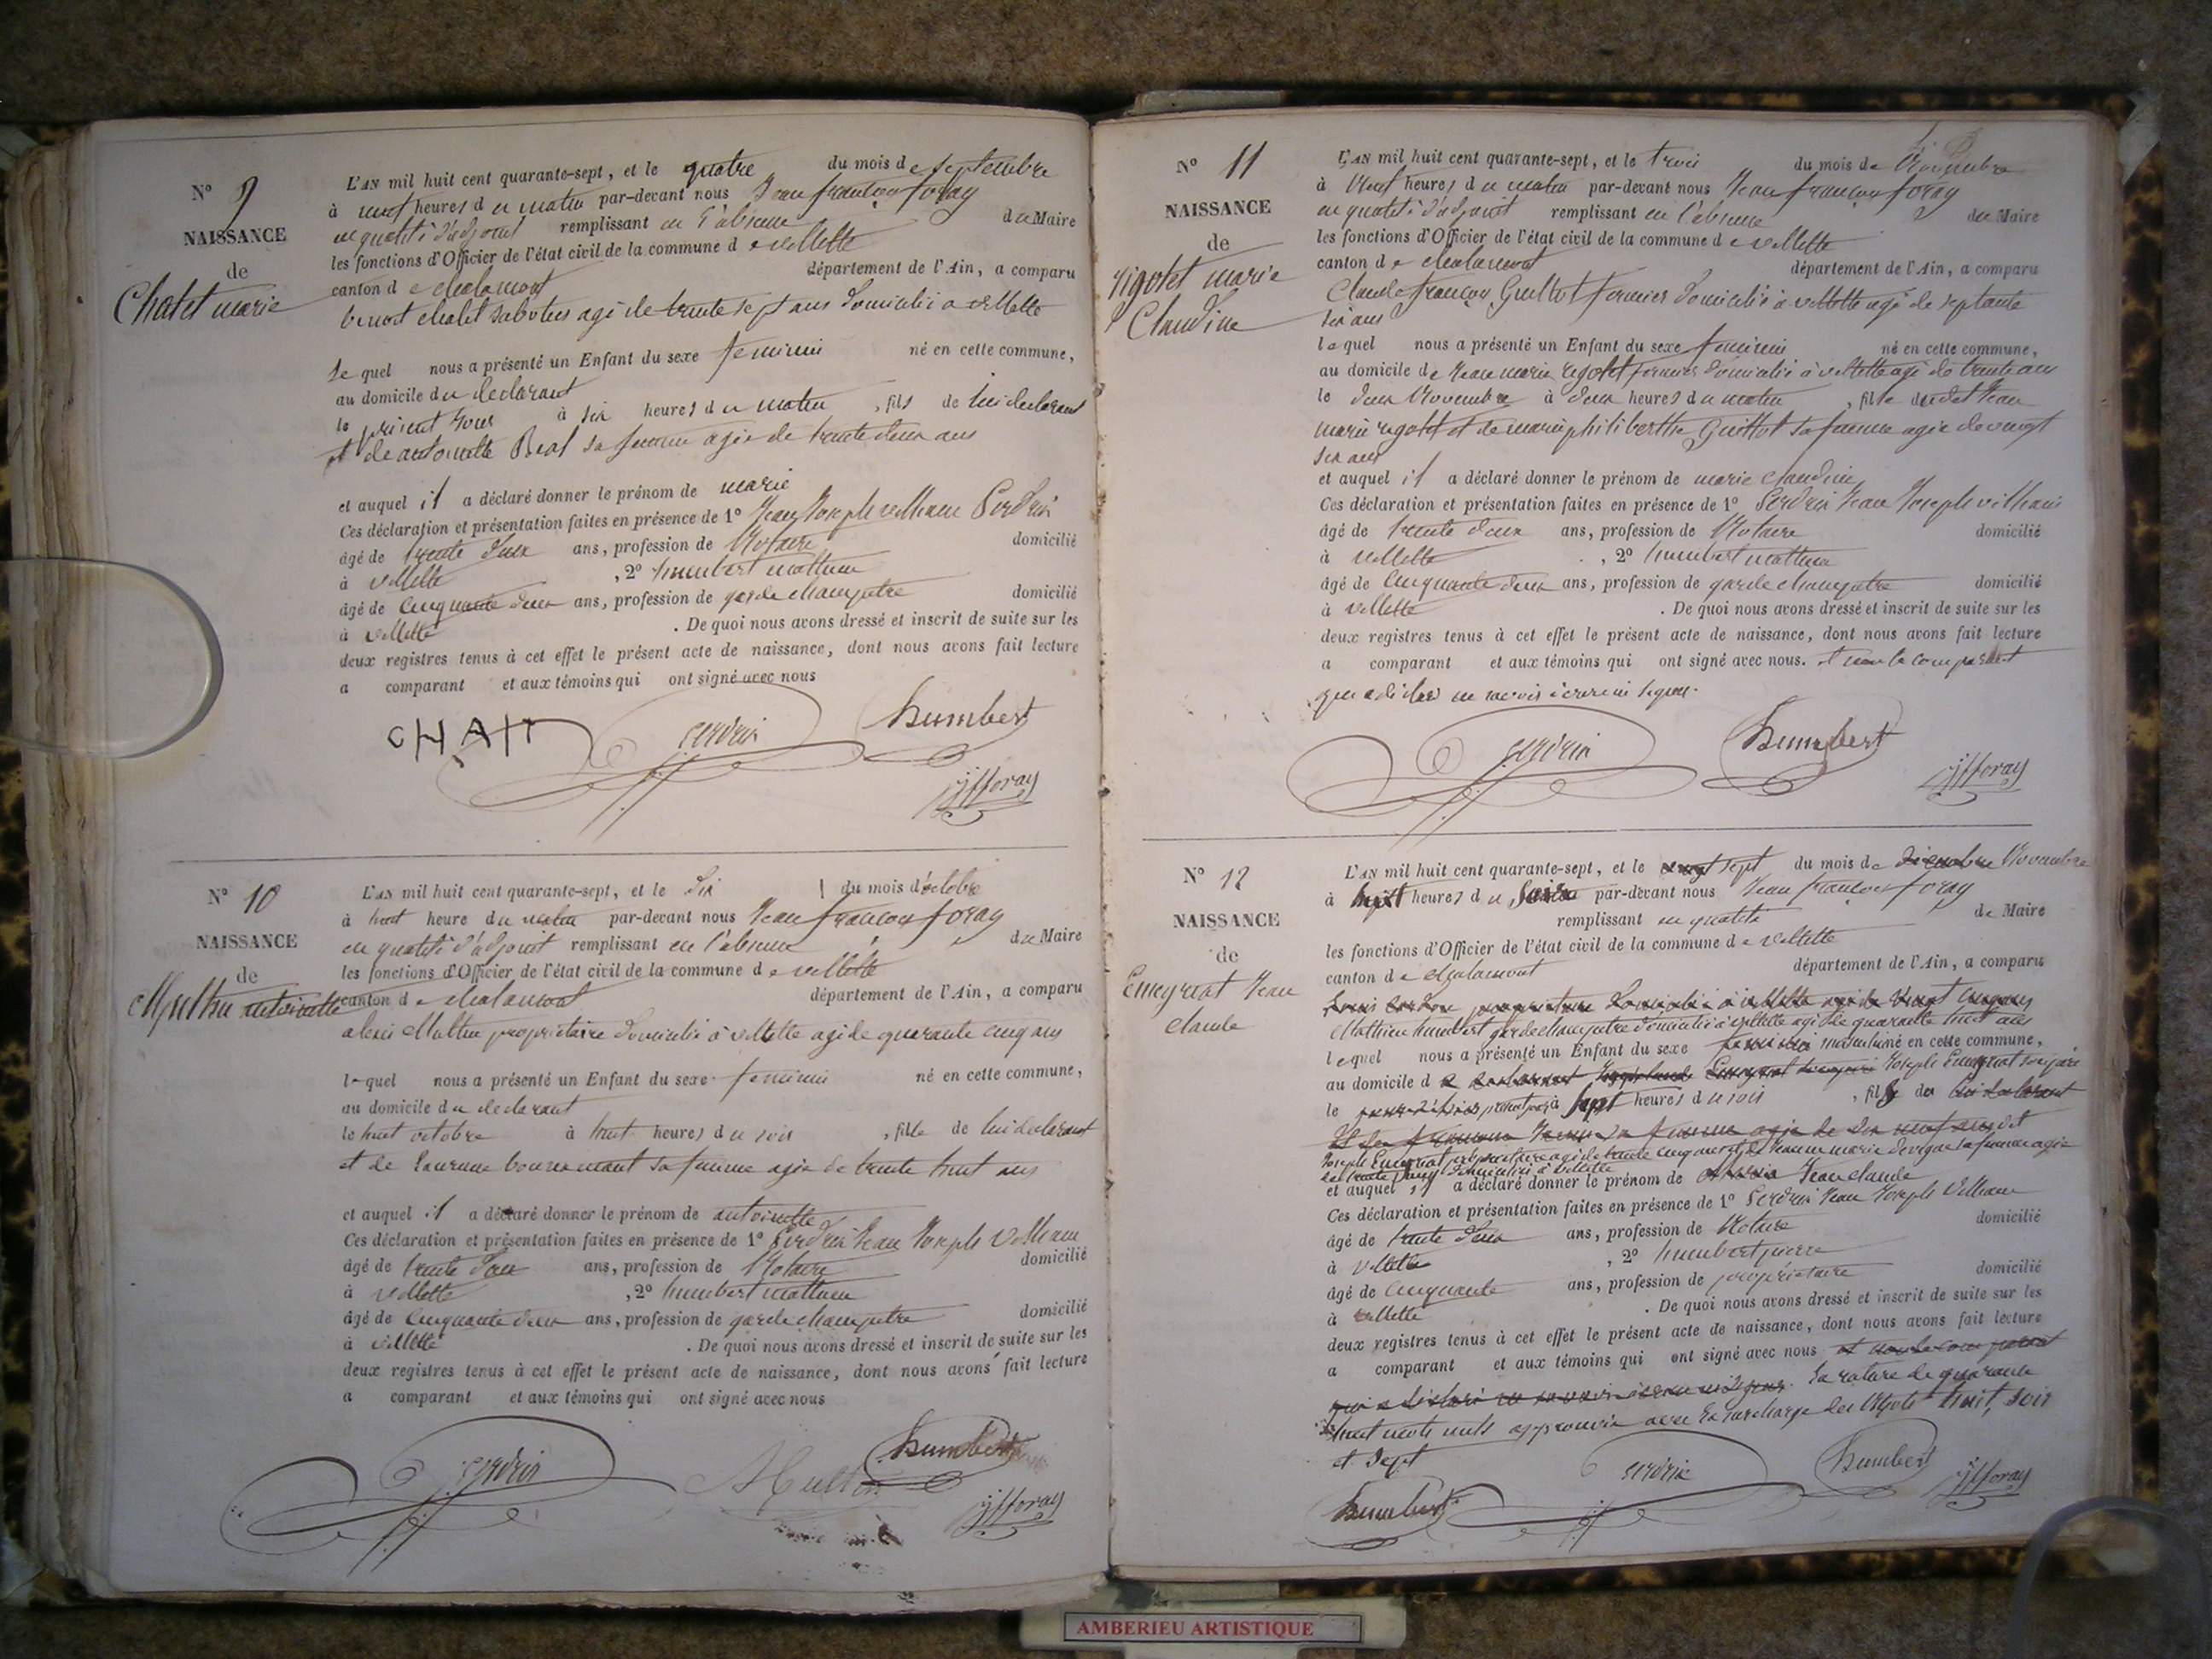 N° 9
NAISSANCE
de
Chatet marie
L'AN mil huit cent quarante-sept, et le quatre du mois de septembre
à neuf heures du matin par-devant nous Jean françois foray
en qualité d'adjoint remplissant en l'absence du Maire
les fonctions d'Officier de l'état civil de la commune de villette
canton de chalamont département de l'Ain, a comparu
benoit chatet sabotier agé de trente sept ans domicilié a villette
le quel nous a présenté un Enfant du sexe feminin né en cette commune,
au domicile du declarant
le prémier jour à six heures du matin, fils de lui declarant
et de antoinette Beal sa femme agée de trente deux ans
et auquel il a déclaré donner le prénom de marie
Ces déclaration et présentation faites en présence de 1° Jean Joseph villiame Perdrix
âgé de trente deux ans, profession de Notaire domicilié
à villette, 2° humbert mathieu
âgé de Cinquante deux ans, profession de garde champetre domicilié
à villette. De quoi nous avons dressé et inscrit de suite sur les
deux registres tenus à cet effet le présent acte de naissance, dont nous avons fait lecture
a comparant et aux témoins qui ont signé avec nous
perdrix Humbert
jffforay
N° 10
NAISSANCE
de
antoinette
L'AN mil huit cent quarante-sept, et le dix du mois d'octobre
à huit heure du matin par-devant nous Jean françois foray
en qualité d'adjoint remplissant en l'absence du Maire
les fonctions d'Officier de l'état civil de la commune de villette
canton de chalamont département de l'Ain, a comparu
alexis Multin propriétaire domicilié à villette agé de quarante cinq ans
lequel nous a présenté un Enfant du sexe feminin né en cette commune,
au domicile du declarant
le huit octobre à huit heures du soir, fille de lui declarant
et de sa femme agée de trente huit ans
et auquel il a déclaré donner le prénom de antoinette
Ces déclaration et présentation faites en présence de 1° Perdrix Jean Joseph Villiame
âgé de trente deux ans, profession de Notaire domicilié
à villette, 2° humbert mathieu
âgé de Cinquante deux ans, profession de garde champetre domicilié
à villette. De quoi nous avons dressé et inscrit de suite sur les
deux registres tenus à cet effet le présent acte de naissance, dont nous avons fait lecture
a comparant et aux témoins qui ont signé avec nous
perdrix Humbert
jffforay
N° 11
NAISSANCE
de
rigotet marie
Claudine
L'AN mil huit cent quarante-sept, et le trois du mois de Novembre
à Neuf heures du matin par-devant nous Jean françois foray
en qualité d'adjoint remplissant en l'absence du Maire
les fonctions d'Officier de l'état civil de la commune de villette
canton de chalamont département de l'Ain, a comparu
Claude françois Guittot fermier domicilié à villette agé de septante
six ans
lequel nous a présenté un Enfant du sexe feminin né en cette commune,
au domicile de Jean marie rigotet fermier domicilié à villette agé de trente ans
le deux Novembre à deux heures du matin, fille dudit Jean
marie rigotet et de marie philiberthe Guittot sa femme agée de vingt
six ans
et auquel il a déclaré donner le prénom de marie claudine
Ces déclaration et présentation faites en présence de 1° Perdrix Jean Joseph villiame
âgé de trente deux ans, profession de Notaire domicilié
à villette, 2° humbert mathieu
âgé de Cinquante deux ans, profession de garde champetre domicilié
à villette. De quoi nous avons dressé et inscrit de suite sur les
deux registres tenus à cet effet le présent acte de naissance, dont nous avons fait lecture
a comparant et aux témoins qui ont signé avec nous. et non le comparant
qui a déclaré ne savoir écrire ni signer.
perdrix Humbert
jffforay
N° 12
NAISSANCE
de
Emeyriat Jean
claude
L'AN mil huit cent quarante-sept, et le vingt sept du mois de Novembre
à huit heures du Soir par-devant nous Jean françois foray
remplissant en qualité de Maire
les fonctions d'Officier de l'état civil de la commune de villette
canton de chalamont département de l'Ain, a comparu
Mathieu humbert garde champetre domicilié à villette agé de quarante huit ans
lequel nous a présenté un Enfant du sexe masculin né en cette commune,
au domicile de Joseph Emeyriat son père
le à Sept heures du soir, fils du
dit
Joseph Emeyriat
domicilié à villette
et auquel il a déclaré donner le prénom de Jean claude
Ces déclaration et présentation faites en présence de 1° Perdrix Jean Joseph Villiame
âgé de trente deux ans, profession de Notaire domicilié
à villette, 2° humbert pierre
âgé de Cinquante ans, profession de propriétaire domicilié
à villette. De quoi nous avons dressé et inscrit de suite sur les
deux registres tenus à cet effet le présent acte de naissance, dont nous avons fait lecture
a comparant et aux témoins qui ont signé avec nous
La rature de quarante
huit mots nuls approuvée avec la surcharge des Mots huit, Soir
et Sept
perdrix Humbert jffforay
humbert
AMBERIEU ARTISTIQUE